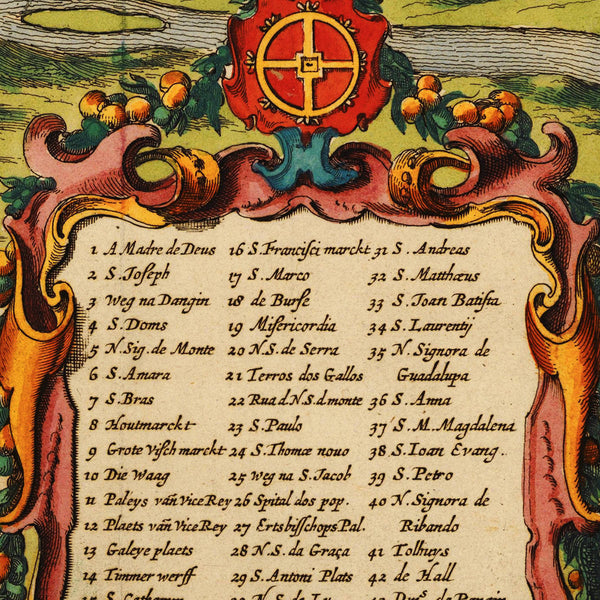 1 A Madre de Deus
2 S. Joseph
3 Weg na Dangin
4 S. Doms
5 N. Sig. de Monte
6 S. Amara
7 S. Bras
8 Houtmarckt
9 Grote Visch marckt
10 Die Waag
11 Paleys van Vice Rey
12 Plaets van Vice Rey
13 Galeye plaets
14 Timmer werff
16 S. Francisci marckt
17 S. Marco
18 de Burse
19 Misericordia
20 N.S. de Serra
21 Terros dos Gallos
22 Rua d. N.S. d monte
23 S. Paulo
24 S. Thomæ novo
25 weg na S. Jacob
26 Spital dos pop.
27 Ertsbisschops Pal.
28 N.S. da Graça
29 S. Antoni Plats
31 S. Andreas
32 S. Matthæus
33 S. Ioan Batista
34 S. Laurentij
35 N. Signora de
Guadalupa
36 S. Anna
37 S. M. Magdalena
38 S. Ioan Evang.
39 S. Petro
40 N. Signora de
Ribando
41 Tolhuys
42 de Hall